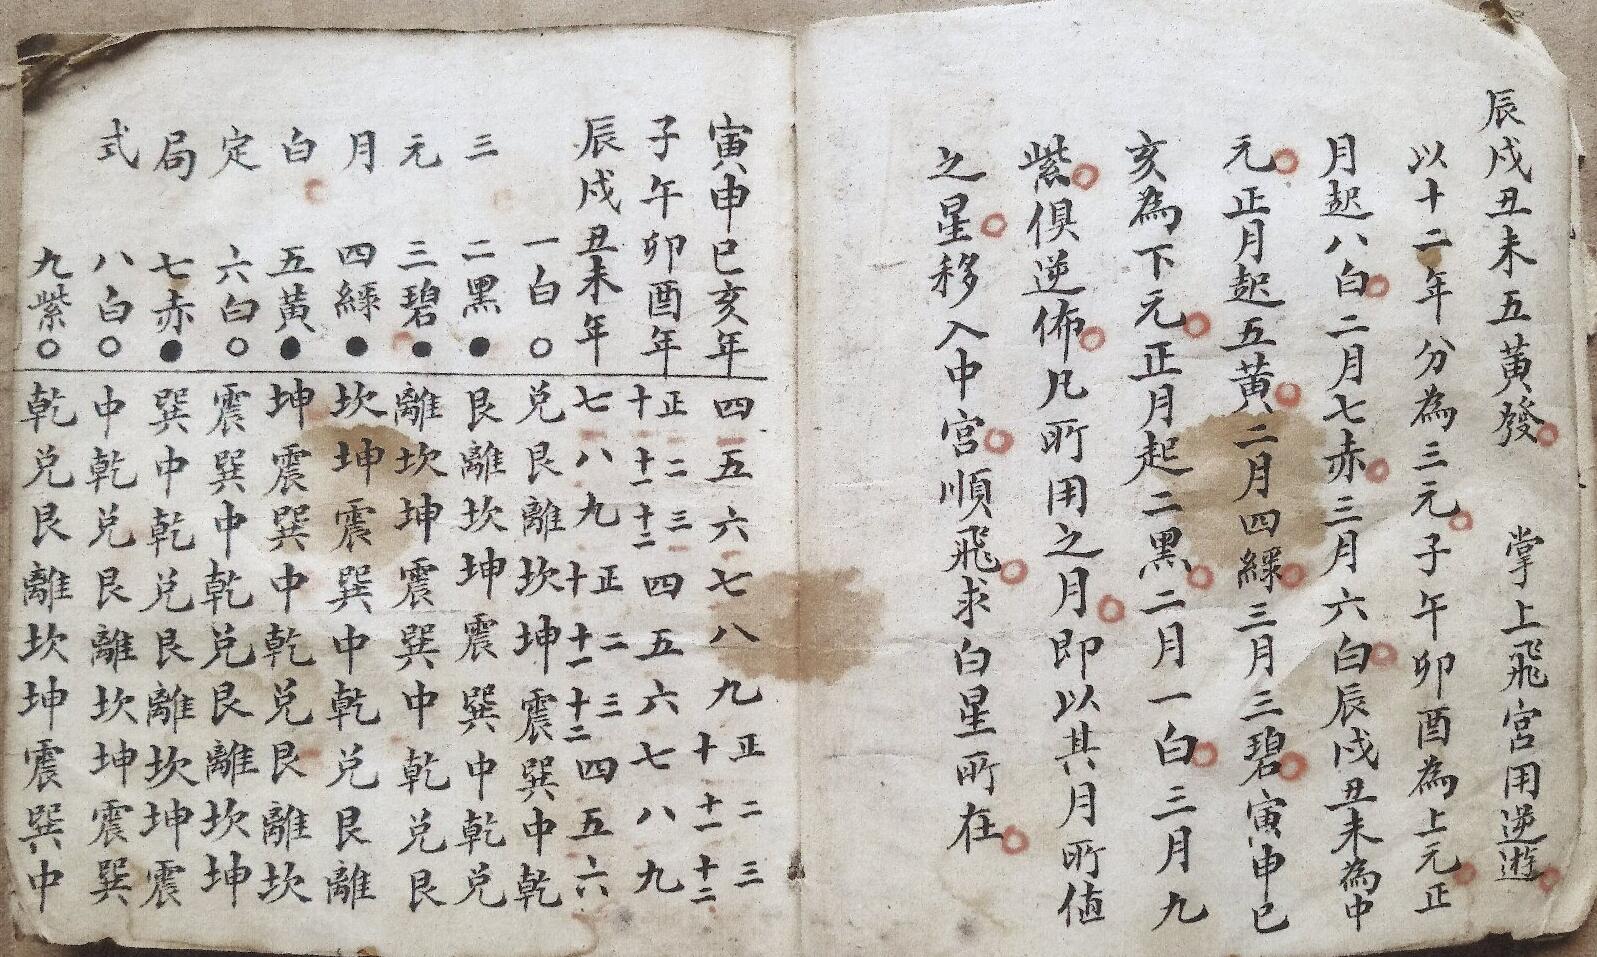 辰戌丑未五黃發 掌上飛宮用逆遊
以十二年分為三元子午卯酉為上元正
月起八白二月七赤三月六白辰戌丑未為中
元正月起五黃二月四綠三月三碧寅申巳
亥為下元正月起二黑二月一白三月九
紫俱逆佈凡所用之月即以其月所值
之星移入中宮順飛求白星所在
寅申巳亥年 四 五 六 七 八 九 正十 二十一 三十二
子午卯酉年 正十 二十一 三十二 四 五 六 七 八 九
辰戌丑未年 七 八 九 正十 二十一 三十二 四 五 六
三元月白定局式
一白○ 兌艮離坎坤震巽中乾
二黑● 艮離坎坤震巽中乾兌
三碧● 離坎坤震巽中乾兌艮
四綠● 坎坤震巽中乾兌艮離
五黃● 坤震巽中乾兌艮離坎
六白○ 震巽中乾兌艮離坎坤
七赤● 巽中乾兌艮離坎坤震
八白○ 中乾兌艮離坎坤震巽
九紫○ 乾兌艮離坎坤震巽中